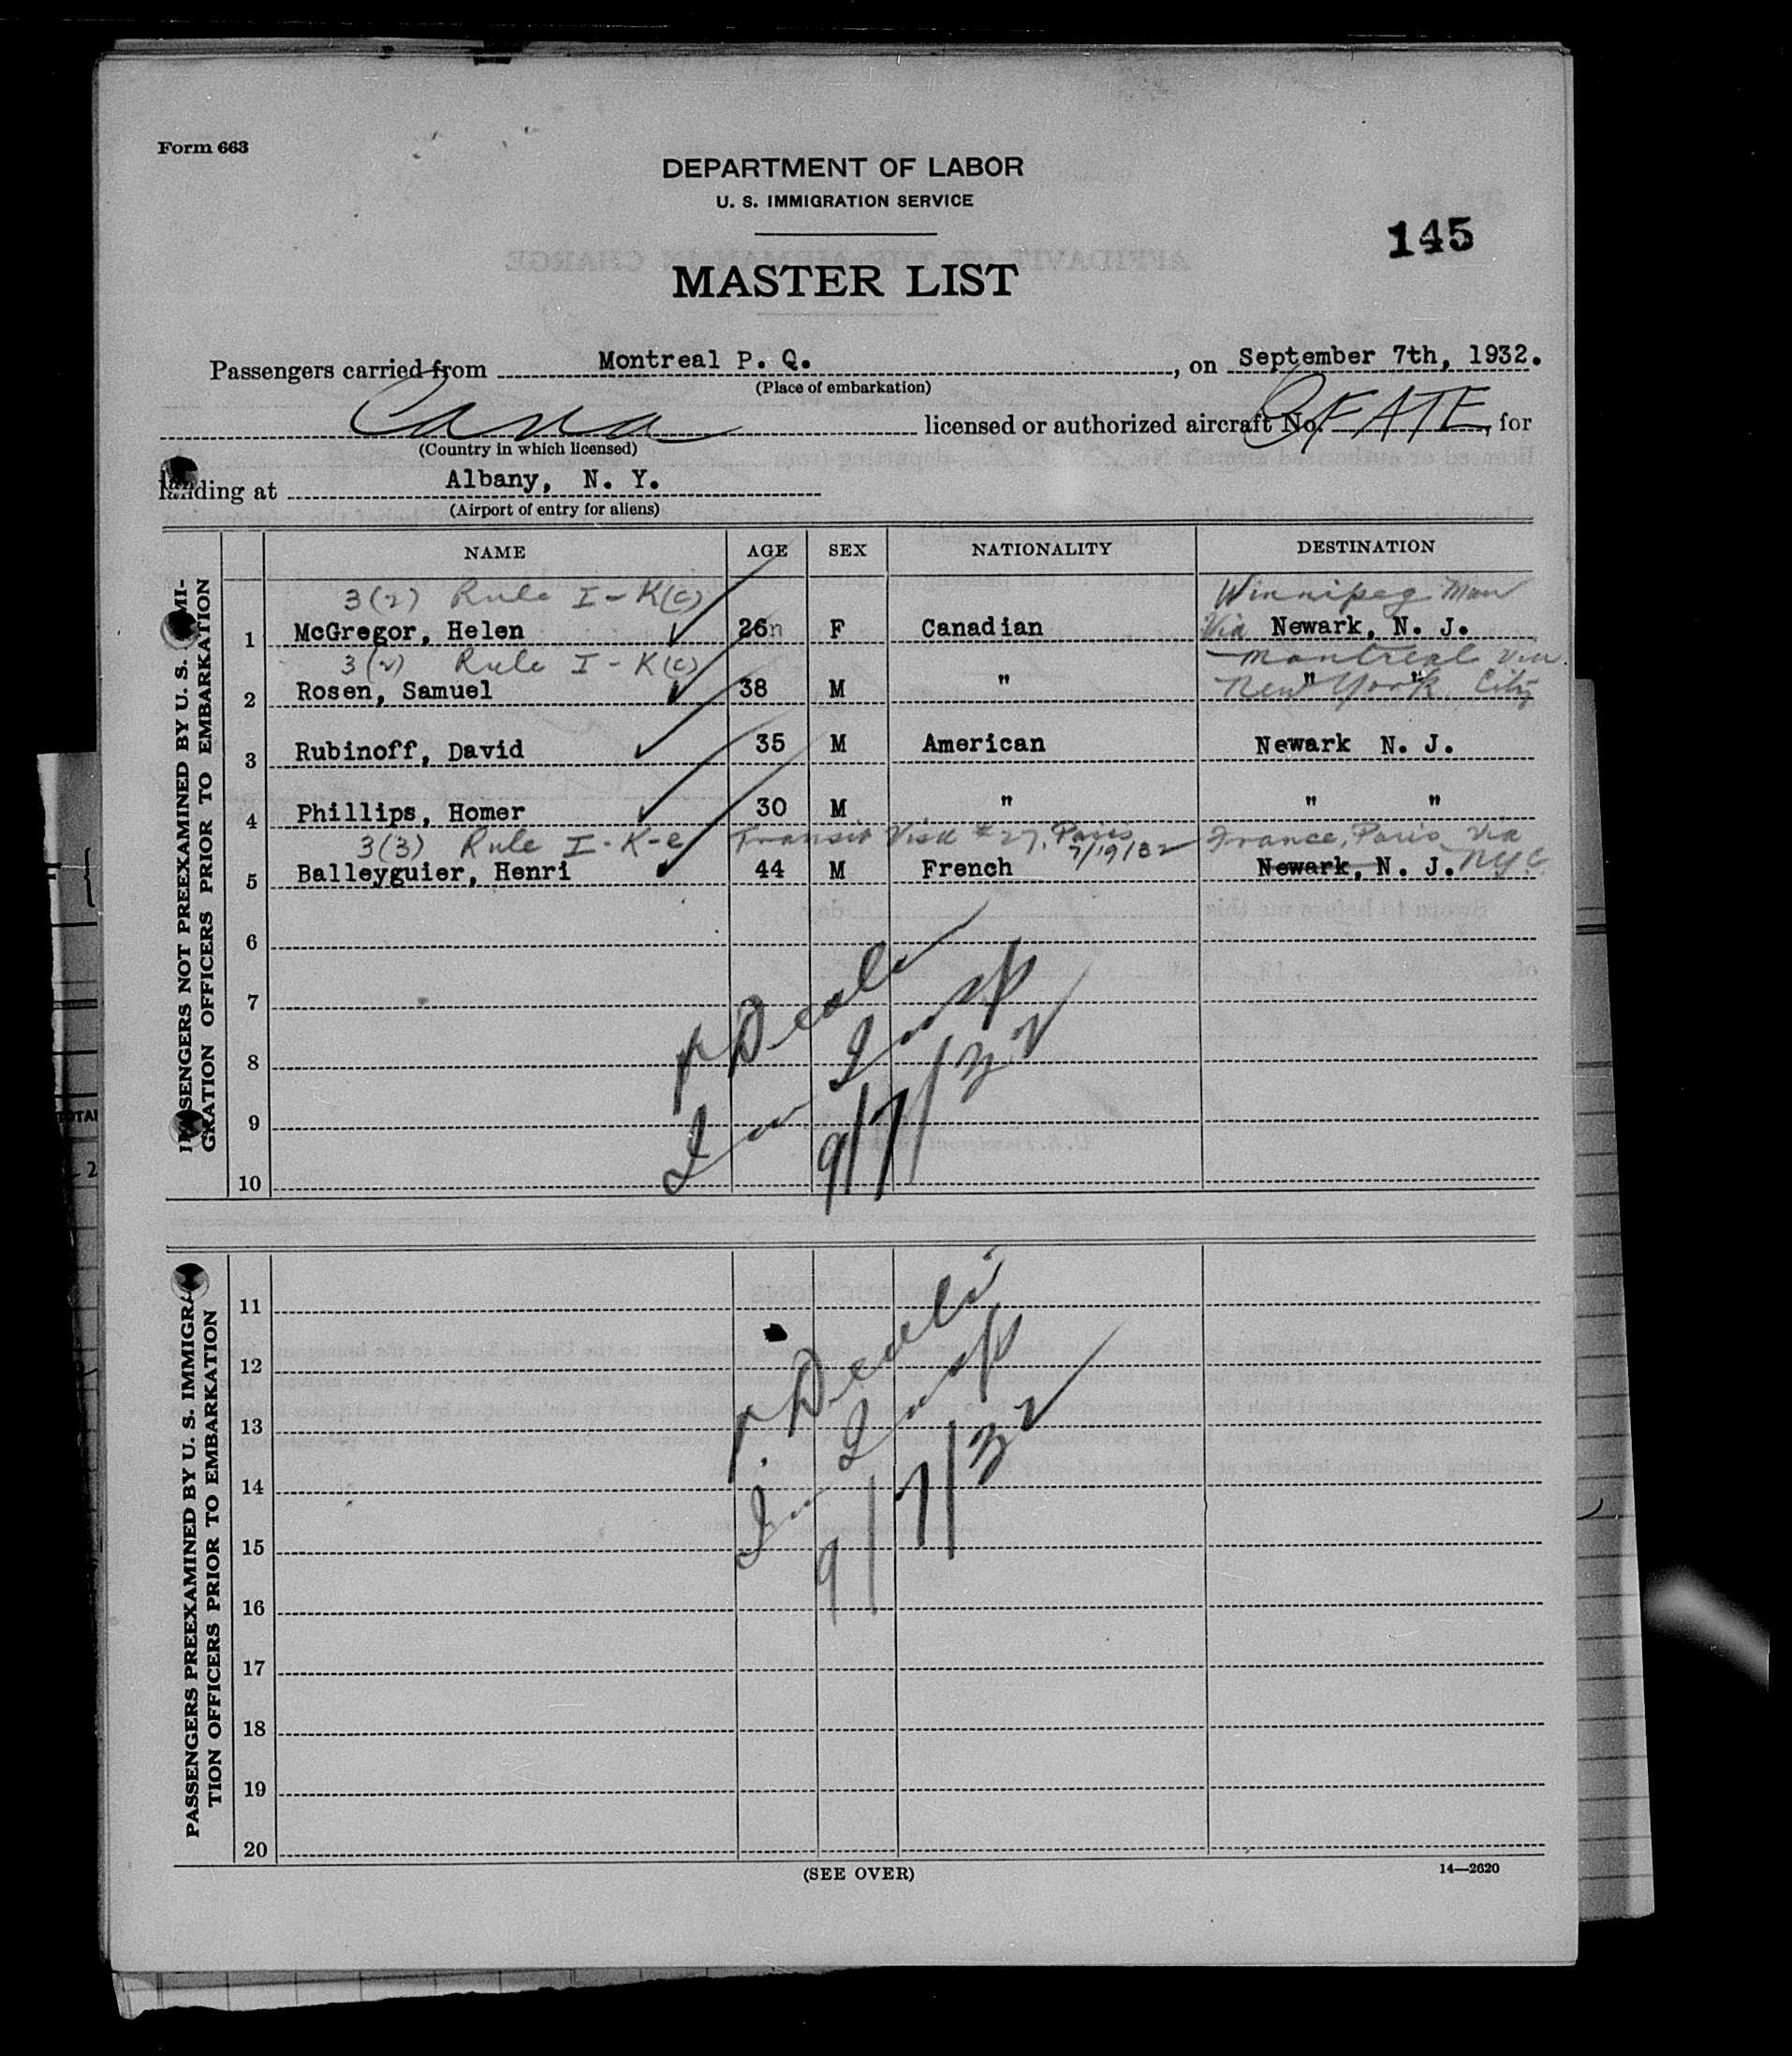 Form 663
DEPARTMENT OF LABOR
U. S. IMMIGRATION SERVICE
145
MASTER LIST
Passengers carried from Montreal P. Q. , on September 7th, 1932.
(Place of embarkation)
Cana licensed or authorized aircraft No. CFATE, for
(Country in which licensed)
landing at Albany, N. Y.
(Airport of entry for aliens)
NAME AGE SEX NATIONALITY DESTINATION
3(2) Rule I-K(c) Winnipeg Man
1 McGregor, Helen 26 F Canadian Via Newark, N. J.
3(2) Rule I-K(c) Montreal via
2 Rosen, Samuel 38 M " " " New York City
3 Rubinoff, David 35 M American Newark N. J.
4 Phillips, Homer 30 M " " "
3(3) Rule I-K-c Transit Visa #27, Paris 7/19/32 France, Paris via
5 Balleyguier, Henri 44 M French Newark, N. J. NYC
6
7
8
9
10
Insp
9/7/32
PASSENGERS NOT PREEXAMINED BY U. S. IMMI-
GRATION OFFICERS PRIOR TO EMBARKATION
11
12
13
14
15
16
17
18
19
20
Insp
9/7/32
PASSENGERS PREEXAMINED BY U. S. IMMIGRA-
TION OFFICERS PRIOR TO EMBARKATION
(SEE OVER)
14—2620